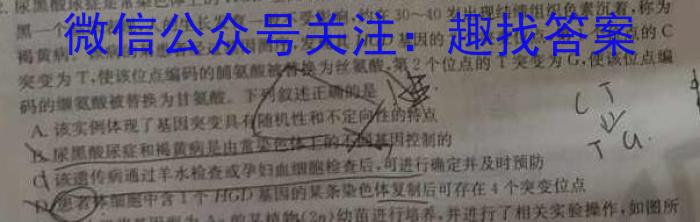 尿黑酸尿症是常染色体上的
黑
微信公众号关注：趣找答案
在30～40 为出现结缔组织色素沉着，称为
褐黄病
基因的 个位点的C
突变为T，使该位点编码的脯氨酸被替换为丝氨酸，第2个位点的T突变为G，使该位点编
码的缬氨酸被替换为甘氨酸。下列叙述正确的是
A. 该实例体现了基因突变具有随机性和不定向性的特点
B. 尿黑酸尿症和褐黄病是由常染色体上的不同基因控制的
C. 该遗传病通过羊水检查或孕妇血细胞检查后，可进行确定并及时预防
D. 患者体细胞中含1个HGD基因的某条染色体复制后可存在4个突变位点
基因型为Aa的某植物(2n)幼苗进行培养，并进行了相关实验操作，如图所
C T
T G